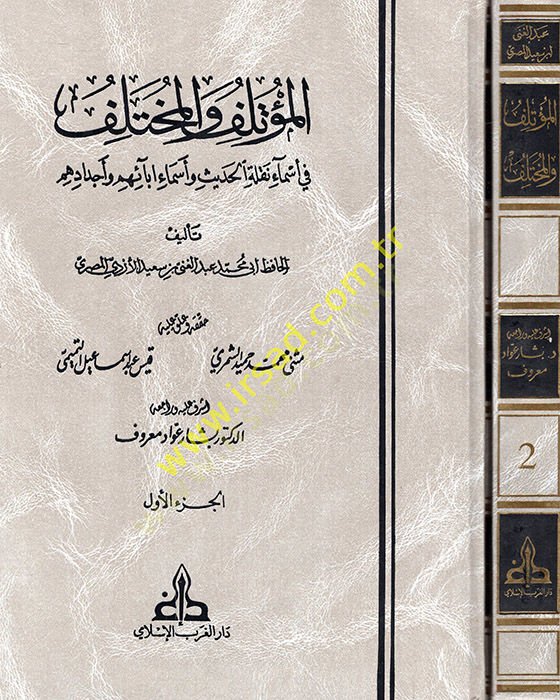 المؤتلف والمختلف
في أسماء نقلة الحديث وأسماء آبائهم وأجدادهم
تأليف
الحافظ أبي محمد عبد الغني بن سعيد الأزدي المصري
حققه وعلق عليه
مثنى محمد حميد الشمري قيس عبد إسماعيل التميمي
أشرف عليه وراجعه
الدكتور بشار عواد معروف
الجزء الأول
دار الغرب الإسلامي
www.irsad.com.tr
عبد الغني
ابن سعيد المصري
المؤتلف
والمختلف
أشرف عليه وراجعه
د. بشار عواد
معروف
2
دار الغرب الإسلامي